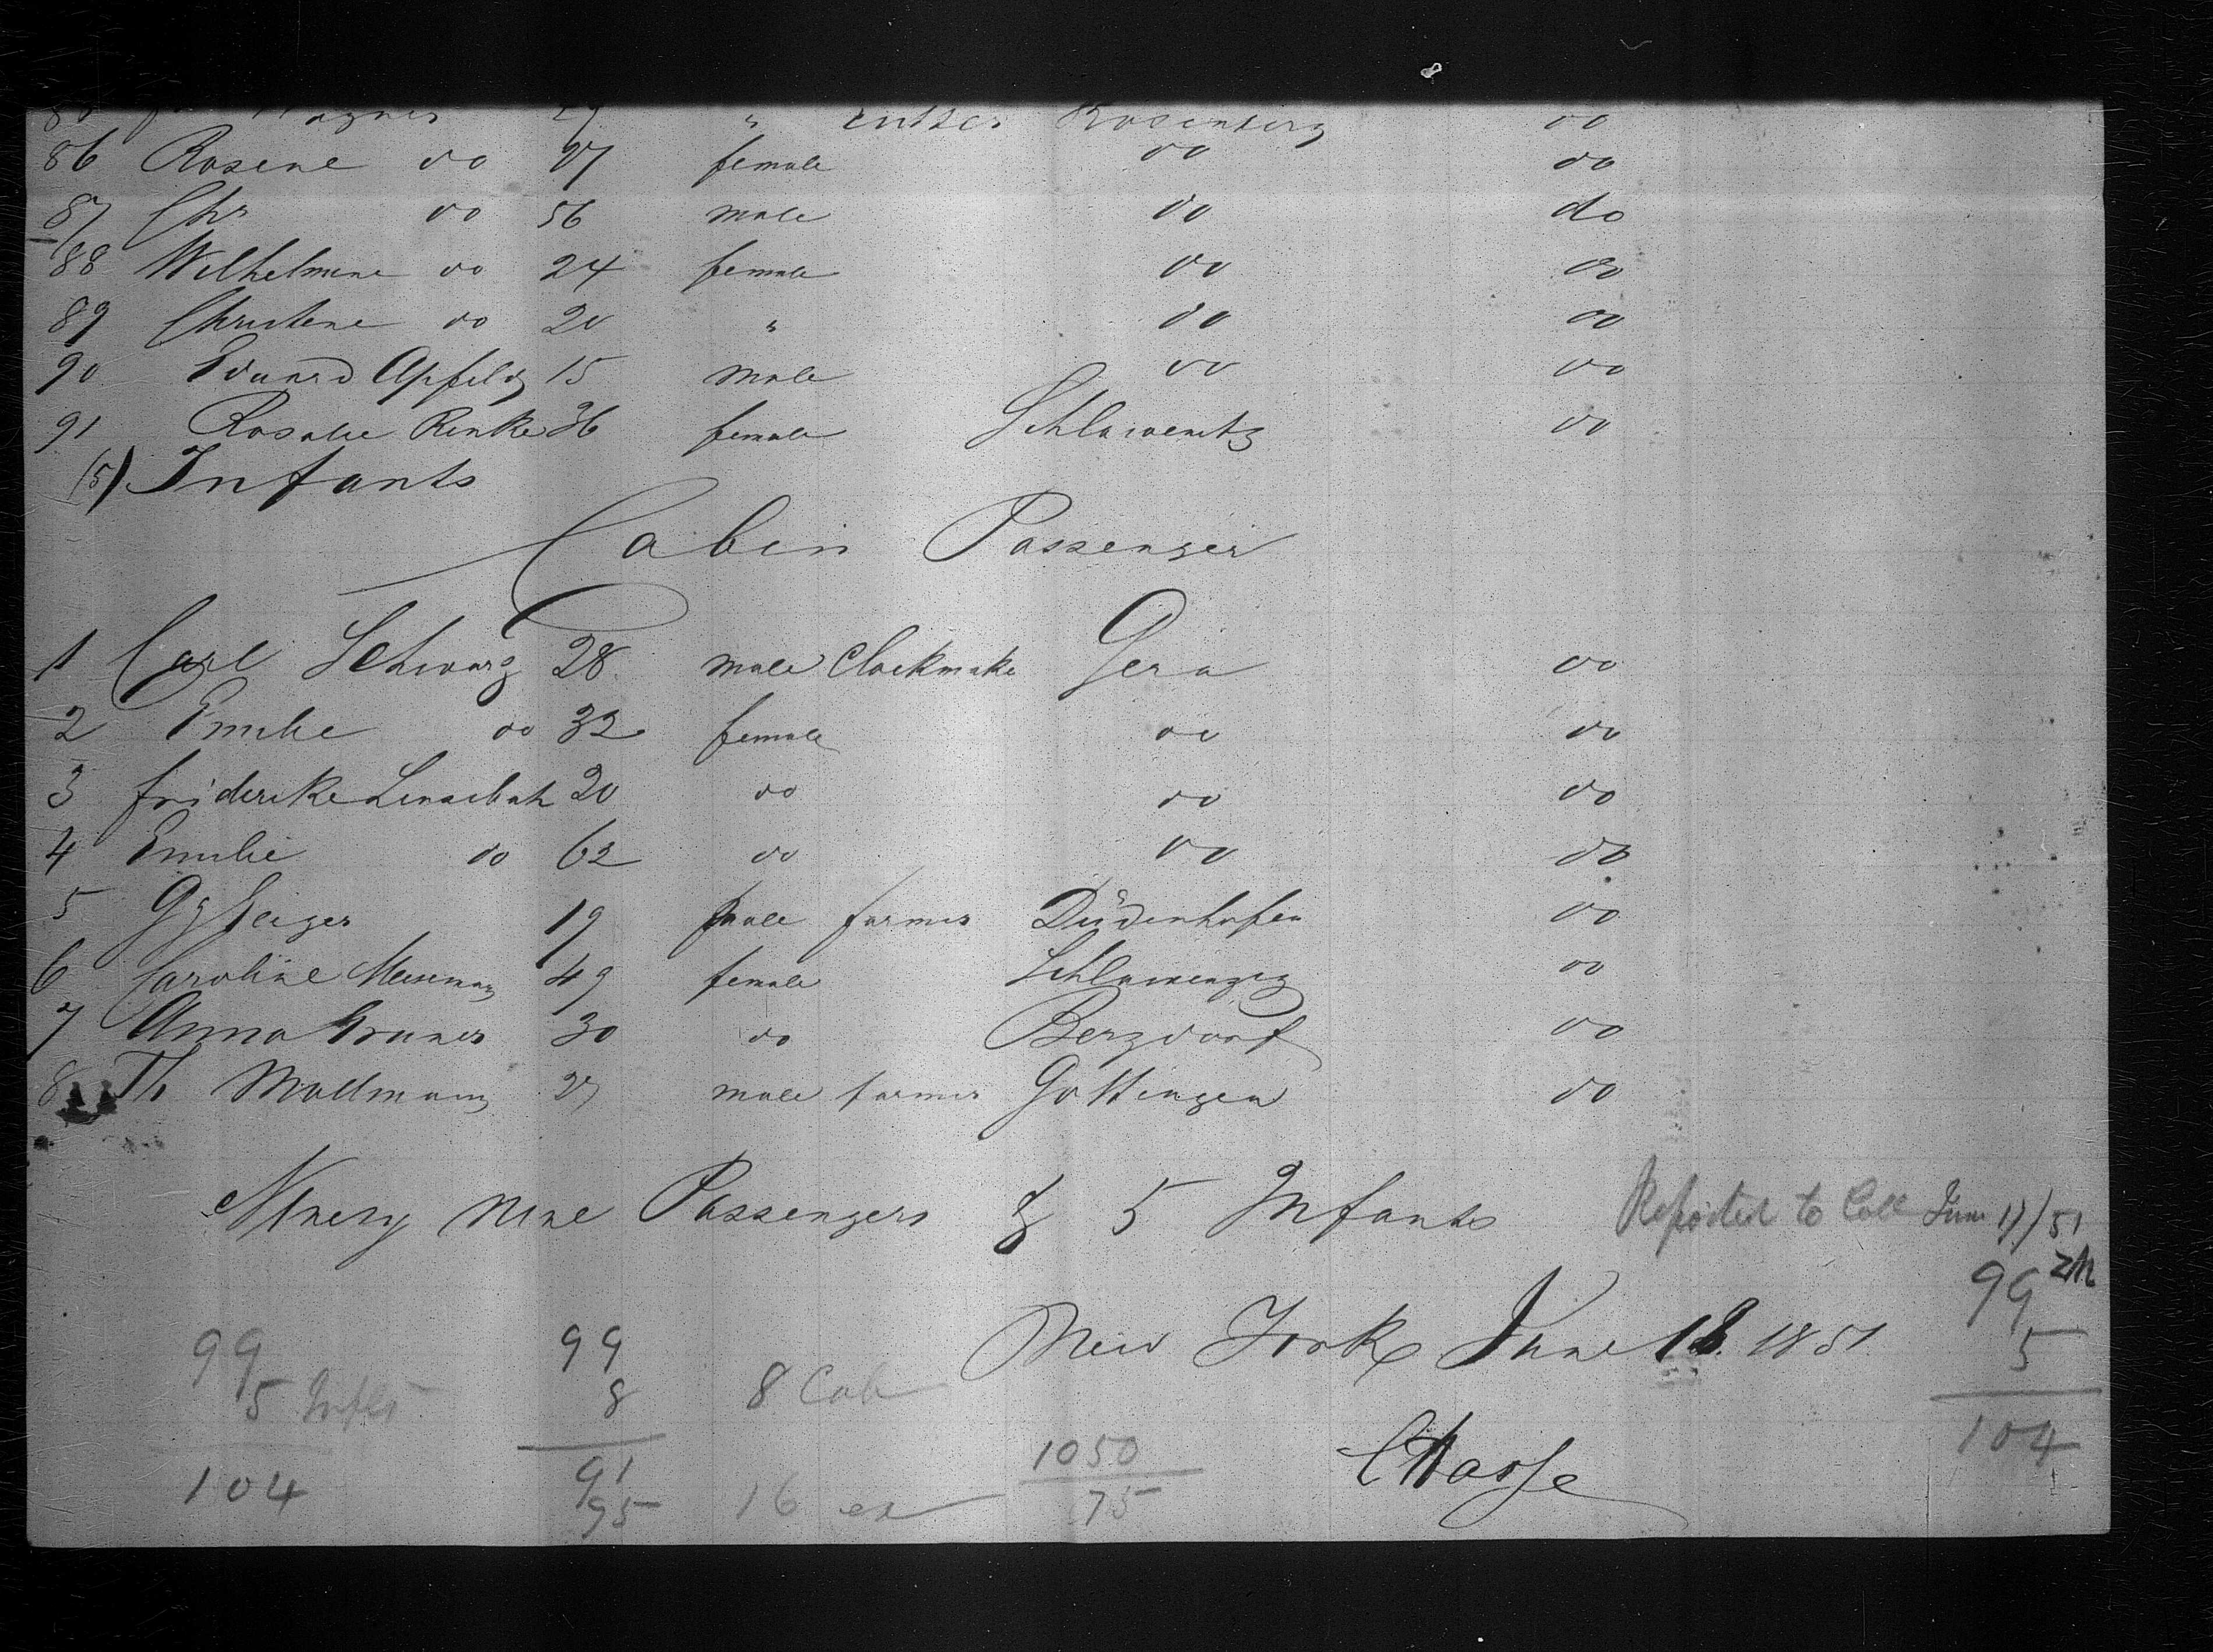 Rosenberg do
86 Rosene do 27 female do do
87 Chr do 56 male do do
88 Wilhelmine do 24 female do do
89 Christine do 20 " do do
90 Eduard 15 male do do
91 Rosalie Renke 36 female do
(5) Infants
Cabin Passenger
1 Carl Schwarz 28 male Clockmake Gera do
2 Emilie do 32 female do do
3 Friderike 20 do do do
4 Emilie do 62 do do do
5 Gg Geiger 19 male farmer Düdenhofen do
6 Caroline 49 female do
7 Anna 30 do Bergdorf do
8 Th Mollmann 27 male farmer Gottingen do
Ninety nine Passengers & 5 Infants
Reported to Coll June 17/51
New York June 18. 1851
99 5 104
99 5 Infts 104
99 8 91 95
8 Cab
16
1050
75